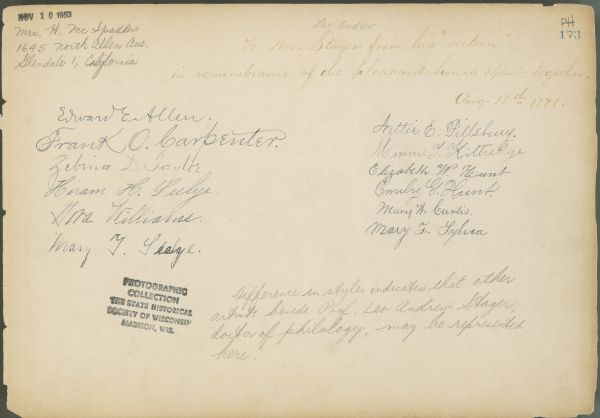 NOV 10 1953
Mrs. H. Mc Spadden
1645 North Allen Ave.
Glendale 1, California
PH
173
Leo Andrew
To Mr. Stager from his "section"
in remembrance of the pleasant hours spent together.
Aug. 18th 1881.
Edward E. Allen.
Frank O. Carpenter.
Zebina D. Taylor
Hiram H.
Williams.
Mary F.
Hettie E. Pillsbury.
Minnie F. Kittredge
Elizabeth W Hunt
Emily G. Hunt.
Mary W. Curtis.
Mary F. Sylvia
Difference in styles indicates that other
artists beside Prof. Leo Andrew Stager,
doctor of philology, may be represented
here.
PHOTOGRAPHIC
COLLECTION
THE STATE HISTORICAL
SOCIETY OF WISCONSIN
MADISON, WIS.